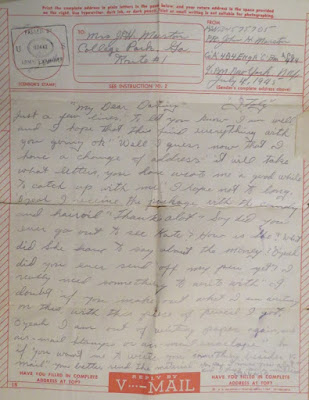 Print the complete address in plain letters in the panel below, and your return address in the space provided on the right. Use typewriter, dark ink, or dark pencil. Faint or small writing is not suitable for photographing.
TO:
FROM
PASSED BY
Mrs J.W.
College Park, Ga.
Route #1
(CENSOR'S STAMP)
SEE INSTRUCTION NO. 2
Co. A. 404 Engr.
New York, N.Y.
July 4, 194
(Sender's complete address above)
"My Dear
"Italy"
Just a few lines to let you know I am well
and I hope that this find everything with
you going ok" Well I guess now that I
have a change of address" It will take
what letters, you have wrote me a good while
to catch up with me. I hope not to long.
I receive the package with the candy
and hairoil "Thanks alot" Say did you
ever go out to see Kate? How is she
did she have to say about the money "Opal
did you ever send off my pen yet? I
really need something to write with" I
doubt if you make out what I am writing
on this with this piece of pencil I got.
Opal I am out of writing paper again, and
air-mail
you want me to write
mail" you better send the
HAVE YOU FILLED IN COMPLETE
ADDRESS AT TOP?
REPLY BY
V···-MAIL
HAVE YOU FILLED IN COMPLETE
ADDRESS AT TOP?